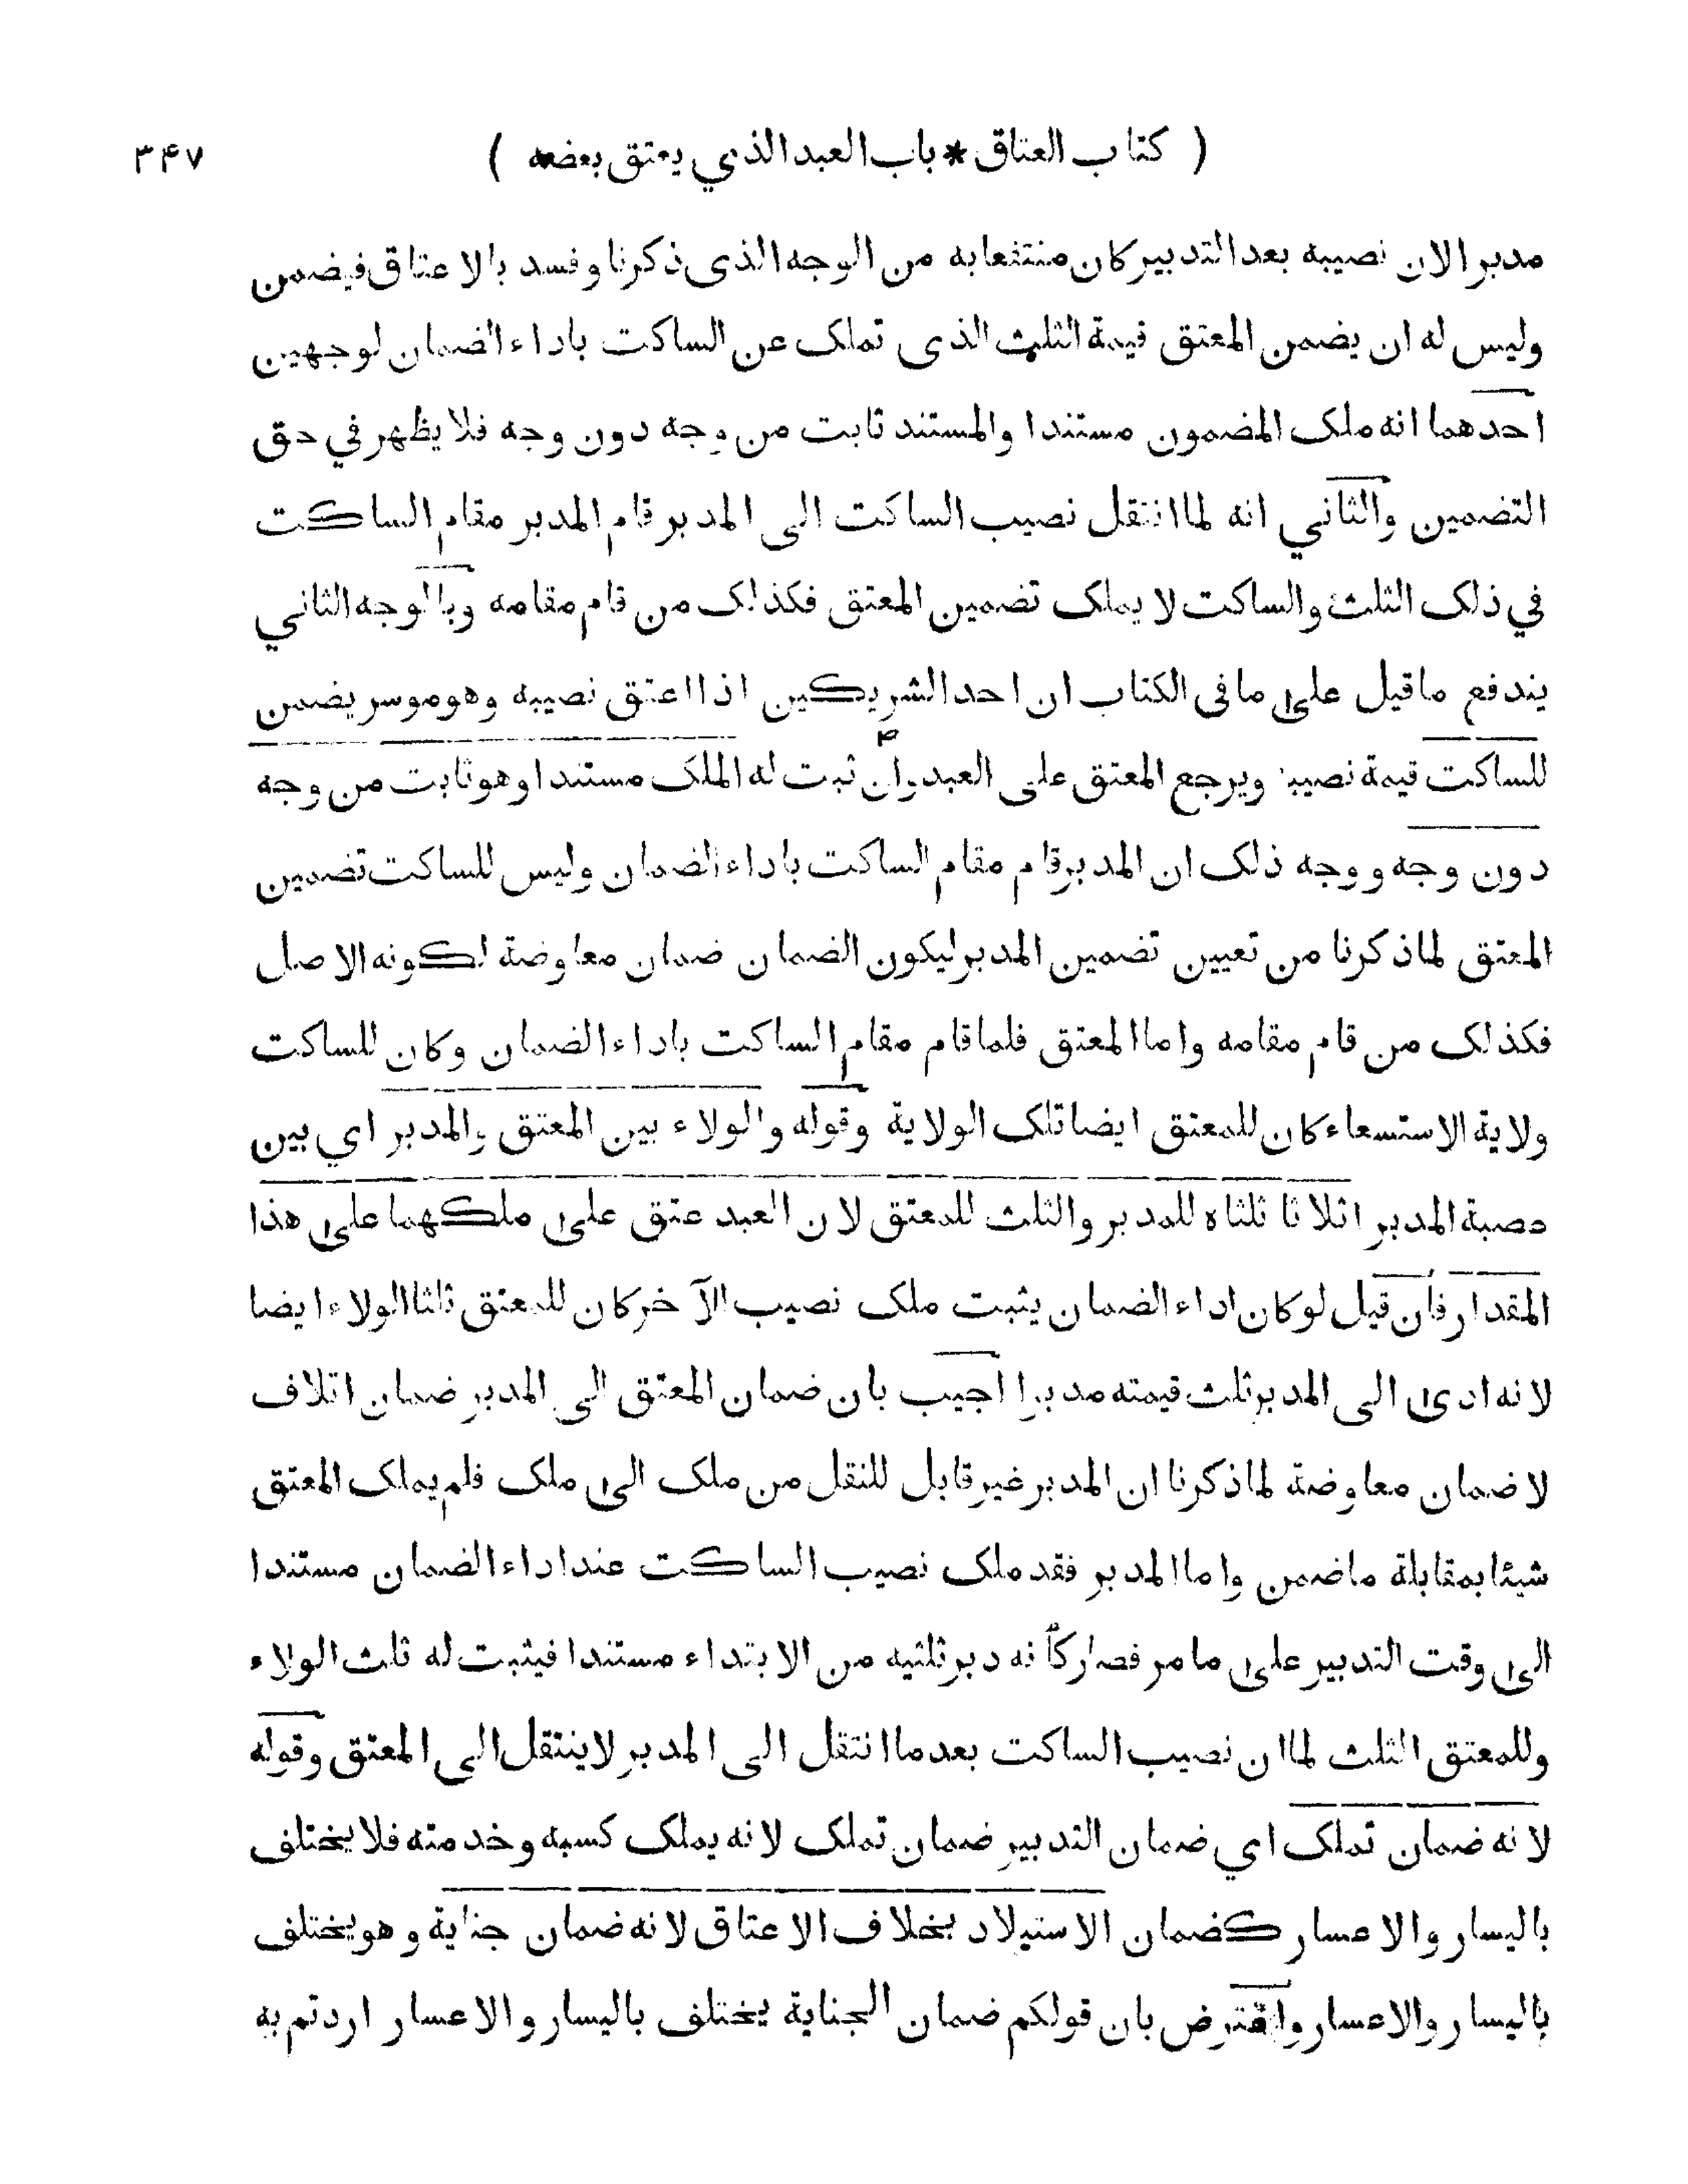 ( كتاب العتاق * باب العبد الذي يعتق بعضه ) ۳۴۷
مدبرا لان نصيبه بعد التدبير كان منتفعا به من الوجه الذى ذكرنا وفسد بالاعتاق فيضمن
وليس له ان يضمن المعتق قيمة الثلث الذى تملك عن الساكت باداء الضمان لوجهين
احدهما انه ملك المضمون مستندا والمستند ثابت من وجه دون وجه فلا يظهر في حق
التضمين والثاني انه لما انتقل نصيب الساكت الى المدبر قام المدبر مقام الساكت
في ذلك الثلث والساكت لا يملك تضمين المعتق فكذلك من قام مقامه وبالوجه الثاني
يندفع ما قيل على ما فى الكتاب ان احد الشريكين اذا اعتق نصيبه وهو موسر يضمن
للساكت قيمة نصيبه ويرجع المعتق على العبد وان ثبت له الملك مستندا وهو ثابت من وجه
دون وجه ووجه ذلك ان المدبر قام مقام الساكت باداء الضمان وليس للساكت تضمين
المعتق لما ذكرنا من تعيين تضمين المدبر ليكون الضمان ضمان معاوضة لكونه الاصل
فكذلك من قام مقامه واما المعتق فلما قام مقام الساكت باداء الضمان وكان للساكت
ولاية الاستسعاء كان للمعتق ايضا تلك الولاية وقوله والولاء بين المعتق والمدبر اي بين
عصبة المدبر اثلاثا ثلثاه للمدبر والثلث للمعتق لان العبد عتق على ملكهما على هذا
المقدار فان قيل لو كان اداء الضمان يثبت ملك نصيب الآخر كان للمعتق ثلثا الولاء ايضا
لانه ادى الى المدبر ثلث قيمته مدبرا اجيب بان ضمان المعتق الى المدبر ضمان اتلاف
لا ضمان معاوضة لما ذكرنا ان المدبر غير قابل للنقل من ملك الى ملك فلم يملك المعتق
شيئا بمقابلة ما ضمن واما المدبر فقد ملك نصيب الساكت عند اداء الضمان مستندا
الى وقت التدبير على ما مر فصار كأنه دبر ثلثيه من الابتداء مستندا فيثبت له ثلث الولاء
وللمعتق الثلث لما ان نصيب الساكت بعد ما انتقل الى المدبر لا ينتقل الى المعتق وقوله
لانه ضمان تملك اي ضمان التدبير ضمان تملك لانه يملك كسبه وخدمته فلا يختلف
باليسار والاعسار كضمان الاستيلاد بخلاف الاعتاق لانه ضمان جناية وهو يختلف
باليسار والاعسار واعترض بان قولكم ضمان الجناية يختلف باليسار والاعسار اردتم به